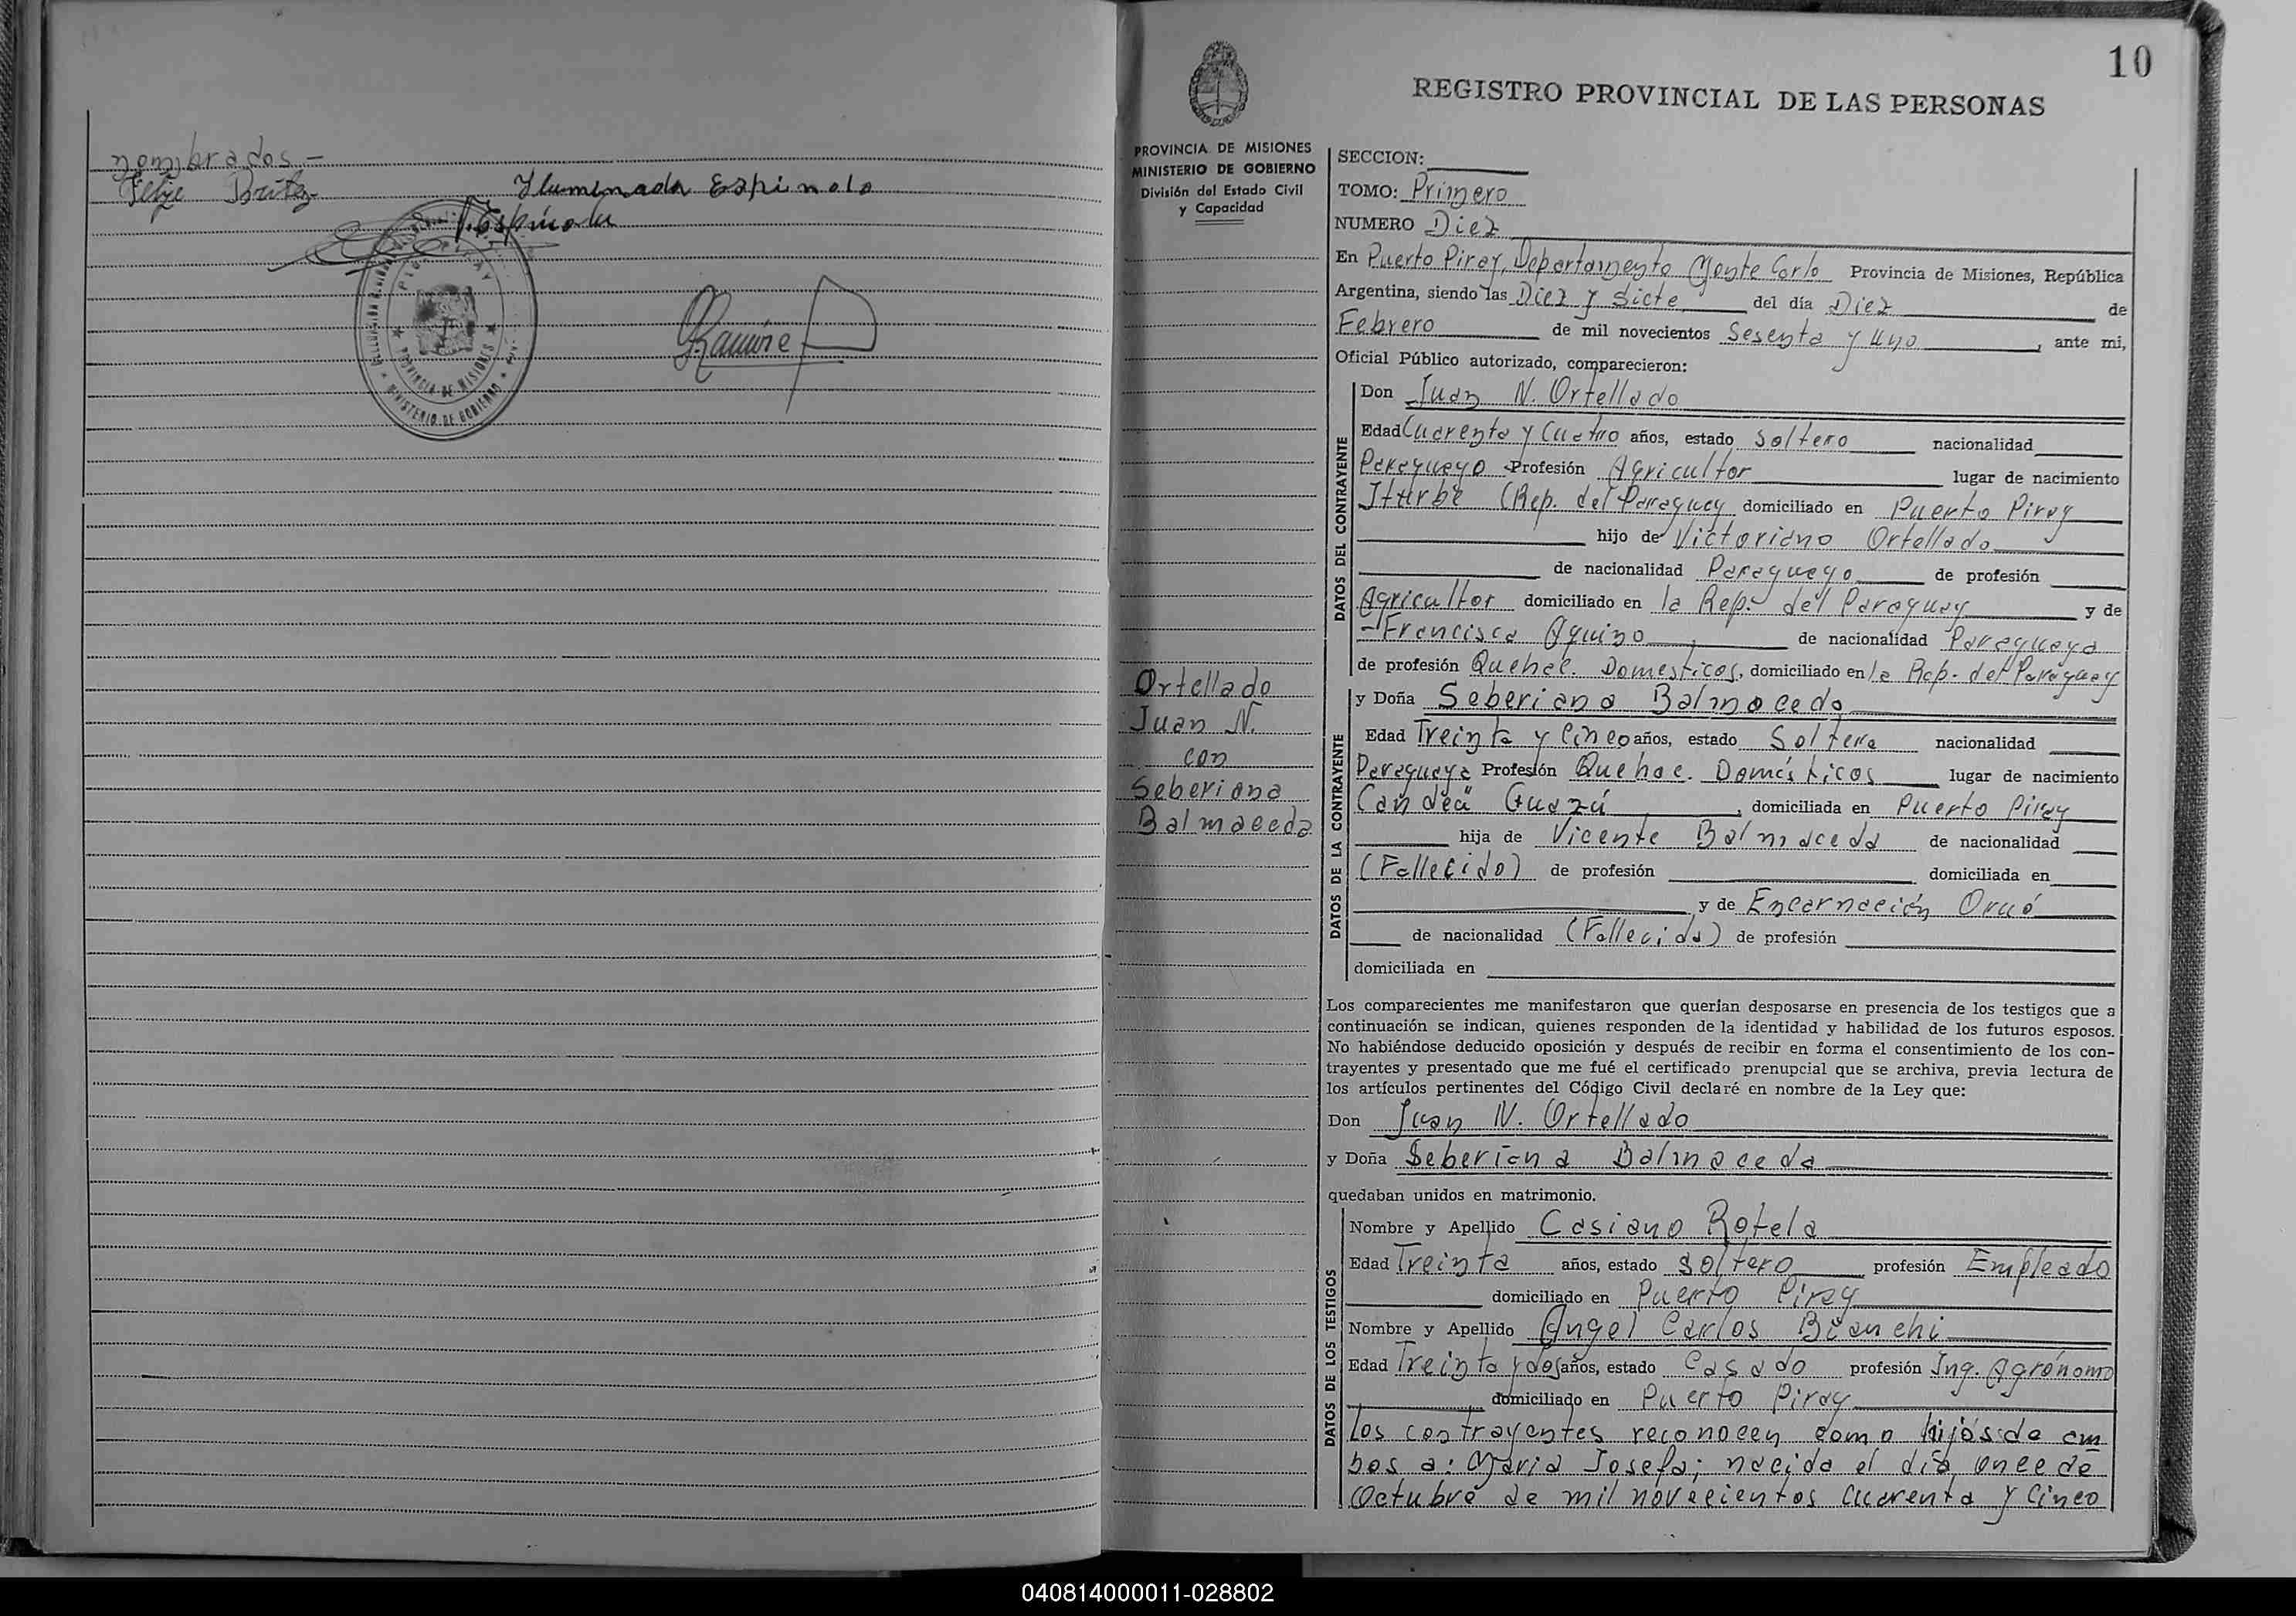 nombrados —
Felix Britez Iluminada Espinola
Espinola
Ramirez
PROVINCIA DE MISIONES
MINISTERIO DE GOBIERNO
10
REGISTRO PROVINCIAL DE LAS PERSONAS
PROVINCIA DE MISIONES
MINISTERIO DE GOBIERNO
División del Estado Civil
y Capacidad
Ortellado
Juan N.
con
Seberiana
Balmaceda
SECCION:
TOMO: Primero
NUMERO Diez
En Puerto Piray, Departamento Monte Carlo Provincia de Misiones, República
Argentina, siendo las Diez y Siete del día Diez de
Febrero de mil novecientos Sesenta y Uno, ante mi,
Oficial Público autorizado, comparecieron:
DATOS DEL CONTRAYENTE
Don Juan N. Ortellado
Edad Cuarenta y Cuatro años, estado Soltero nacionalidad
Paraguayo Profesión Agricultor lugar de nacimiento
Iturbe (Rep. del Paraguay domiciliado en Puerto Piray
hijo de Victoriano Ortellado
de nacionalidad Paraguayo de profesión
Agricultor domiciliado en la Rep. del Paraguay y de
Francisca Aquino de nacionalidad Paraguaya
de profesión Quehac. Domesticos, domiciliado en la Rep. del Paraguay
DATOS DE LA CONTRAYENTE
y Doña Seberiana Balmaceda
Edad Treinta y Cinco años, estado Soltera nacionalidad
Paraguaya Profesión Quehac. Domésticos lugar de nacimiento
Candea Guazú, domiciliada en Puerto Piray
hija de Vicente Balmaceda de nacionalidad
(Fallecido) de profesión domiciliada en
y de Encarnación Orué
de nacionalidad (Fallecida) de profesión
domiciliada en
Los comparecientes me manifestaron que querían desposarse en presencia de los testigos que a
continuación se indican, quienes responden de la identidad y habilidad de los futuros esposos.
No habiéndose deducido oposición y después de recibir en forma el consentimiento de los con-
trayentes y presentado que me fué el certificado prenupcial que se archiva, previa lectura de
los artículos pertinentes del Código Civil declaré en nombre de la Ley que:
Don Juan N. Ortellado
y Doña Seberiana Balmaceda
quedaban unidos en matrimonio.
DATOS DE LOS TESTIGOS
Nombre y Apellido Casiano Rotela
Edad Treinta años, estado Soltero profesión Empleado
domiciliado en Puerto Piray
Nombre y Apellido Angel Carlos Bianchi
Edad Treinta y dos años, estado Casado profesión Ing. Agrónomo
domiciliado en Puerto Piray
los contrayentes reconocen como hijos de am
bos a: Maria Josefa; nacida el día once de
Octubre de mil novecientos cuarenta y Cinco
040814000011-028802